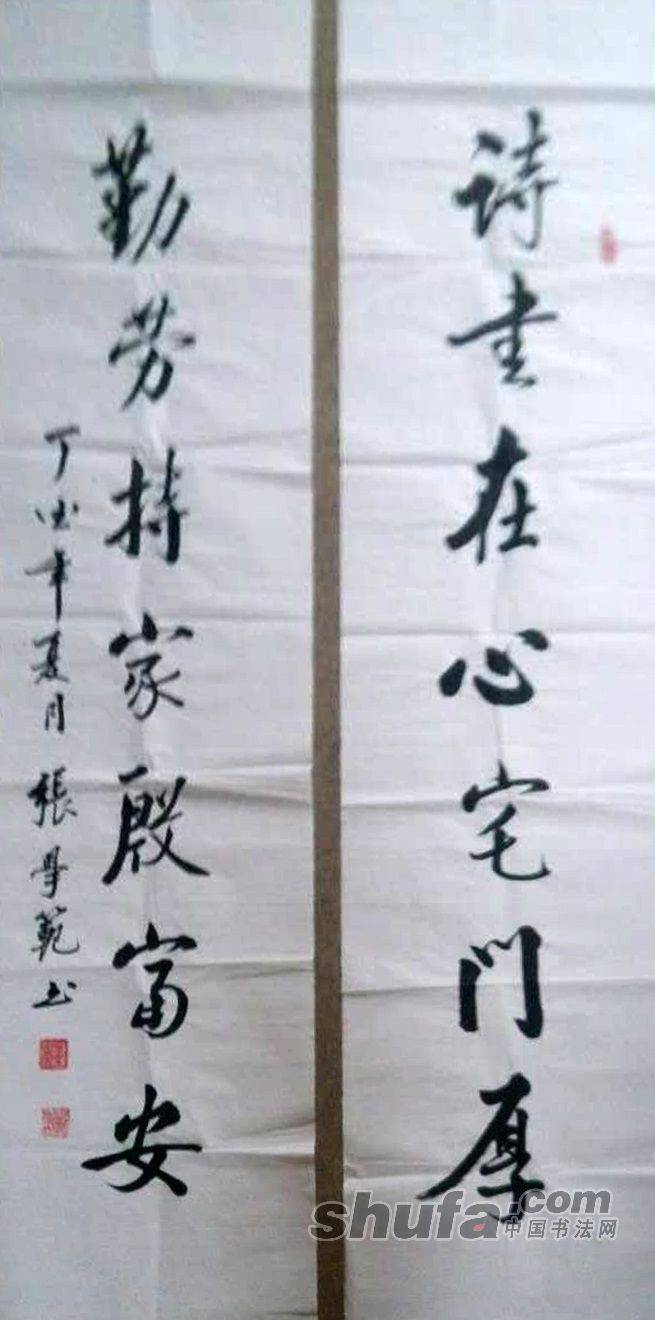 诗书在心宅门厚
勤劳持家殷富安
丁酉年夏月張學範书
shufa.com
中国书法网